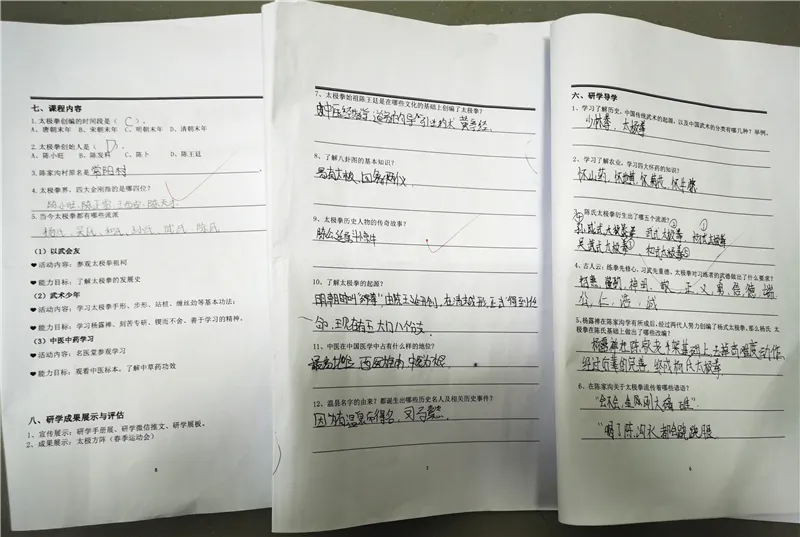 七、课程内容
1.太极拳创编的时间段是（ C ）。
A、唐朝末年 B、宋朝末年 C、明朝末年 D、清朝末年
2.太极拳创始人是（ D ）。
A、陈小旺 B、陈发科 C、陈卜 D、陈王廷
3.陈家沟村原名是常阳村
4.太极拳界，四大金刚指的是哪四位？
陈小旺、陈正雷、王西安、陈天才
5.当今太极拳都有哪些流派
杨氏、吴氏、和氏、孙氏、武氏、陈氏
（1）以武会友
❤活动内容：参观太极拳祖祠
❤能力目标：了解太极拳的发展史
（2）武术少年
❤活动内容：学习太极拳手形、步形、站桩、缠丝劲等基本功法；
❤能力目标：学习杨露禅、刻苦专研、锲而不舍、善于学习的精神。
（3）中医中药学习
❤活动内容：名医堂参观学习
❤能力目标：观看中医标本，了解中草药功效
八、研学成果展示与评估
1、宣传展示：研学手册展、研学微信推文、研学展板。
2、成果展示：太极方阵（春季运动会）
8
7、太极拳始祖陈王廷是在哪些文化的基础上创编了太极拳？
黄庭经
8、了解八卦图的基本知识？
易有太极，四象两仪
9、太极拳历史人物的传奇故事？
10、了解太极拳的起源？
由陈王廷
现在有五大门八个支
11、中医在中国医学中占有什么样的地位？
最高地位，西医为辅，中医为根
12、温县名字的由来？都诞生出哪些历史名人及相关历史事件？
因为有温泉而得名，司马懿
7
六、研学导学
1、学习了解历史，中国传统武术的起源，以及中国武术的分类有哪几种？举例。
少林拳、太极拳
2、学习了解农业，学习四大怀药的知识？
怀山药，怀地黄，怀菊花，怀牛膝
3、陈氏太极拳衍生出了哪五个流派？
武式太极拳② 杨式太极拳①
吴 式太极拳 和式太极拳
4、古人云：练拳先修心、习武先重德。太极拳对习练者的武德做出了什么要求？
正、义、勇、信、德
仁、诚
5、杨露禅在陈家沟学有所成后，经过两代人努力创编了杨式太极拳，那么杨氏 太
极拳在陈氏基础上做出了哪些改编？
杨露禅在陈家老架基础上去掉高难度动作
经过后辈的完善，终成杨氏太极拳
6、在陈家沟关于太极拳流传有哪些谚语？
“会不会，金刚大捣碓”
“喝了陈沟水，都会跷跷腿
6